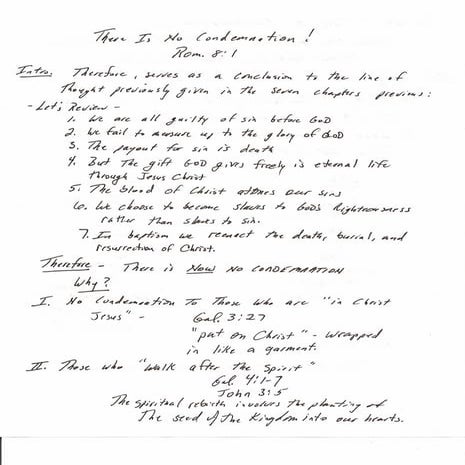 There Is No Condemnation!
Rom. 8:1
Intro: Therefore, serves as a conclusion to the line of
Thought previously given in the seven chapters previous:
- Let's Review -
1. We are all guilty of sin before GOD
2. We fail to measure up to the glory of GOD
3. The payout for sin is death
4. But The gift GOD gives freely is eternal life
through Jesus Christ
5. The blood of Christ atones our sins
6. We choose to become slaves to GOD's Righteousness
rather than slaves to sin.
7. In baptism we reenact the death, burial, and
resurrection of Christ.
Therefore - There is NOW NO CONDEMNATION
Why?
I. No Condemnation To Those who are "in Christ
Jesus" - Gal. 3:27
"put on Christ" - wrapped
in like a garment.
II. Those who "Walk after the Spirit"
Gal. 4:1-7
John 3:5
The spiritual rebirth involves the planting of
The seed of the Kingdom into our hearts.